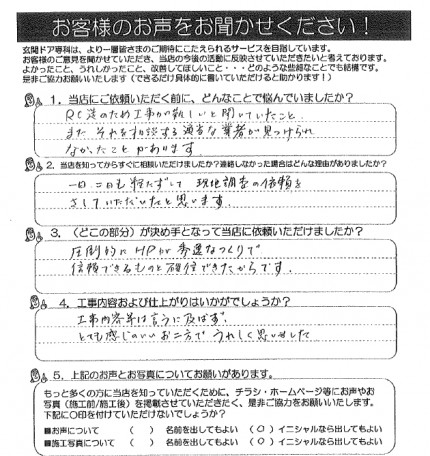 お客様のお声をお聞かせください！
玄関ドア専科は、より一層皆さまのご期待にこたえられるサービスを目指しています。
お客様のご意見を聞かせていただき、当店の今後の活動に反映させていただきたいと考えております。
よかったこと、うれしかったこと、改善してほしいこと・・・どのような些細なことでも結構です。
是非ご協力お願いします（できるだけ具体的に書いていただけると助かります！）
1．当店にご依頼いただく前に、どんなことで悩んでいましたか？
RC造のため工事が難しいと聞いていたこと
また それを相談する適当な業者が見つけられ
なかったこと があります
2．当店を知ってからすぐに相談いただけましたか？連絡しなかった場合はどんな理由がありましたか？
一日、二日も経たずして 現地調査の依頼を
させていただいたと思います．
3．（どこの部分）が決め手となって当店に依頼いただけましたか？
圧倒的にHPが秀逸なつくりで
信頼できるものと確信できたからです．
4．工事内容および仕上がりはいかがでしょうか？
工事内容等は言うに及ばず．
とても感じのいいお二方で うれしく思いました
5．上記のお声とお写真についてお願いがあります。
もっと多くの方に当店を知っていただくために、チラシ・ホームページ等にお声やお
写真（施工前/施工後）を掲載させていただきたく、是非ご協力をお願いいたします。
下記に〇印を付けていただけないでしょうか？
■お声について （ ） 名前を出してもよい （〇）イニシャルなら出してもよい
■施工写真について （ ） 名前を出してもよい （〇）イニシャルなら出してもよい